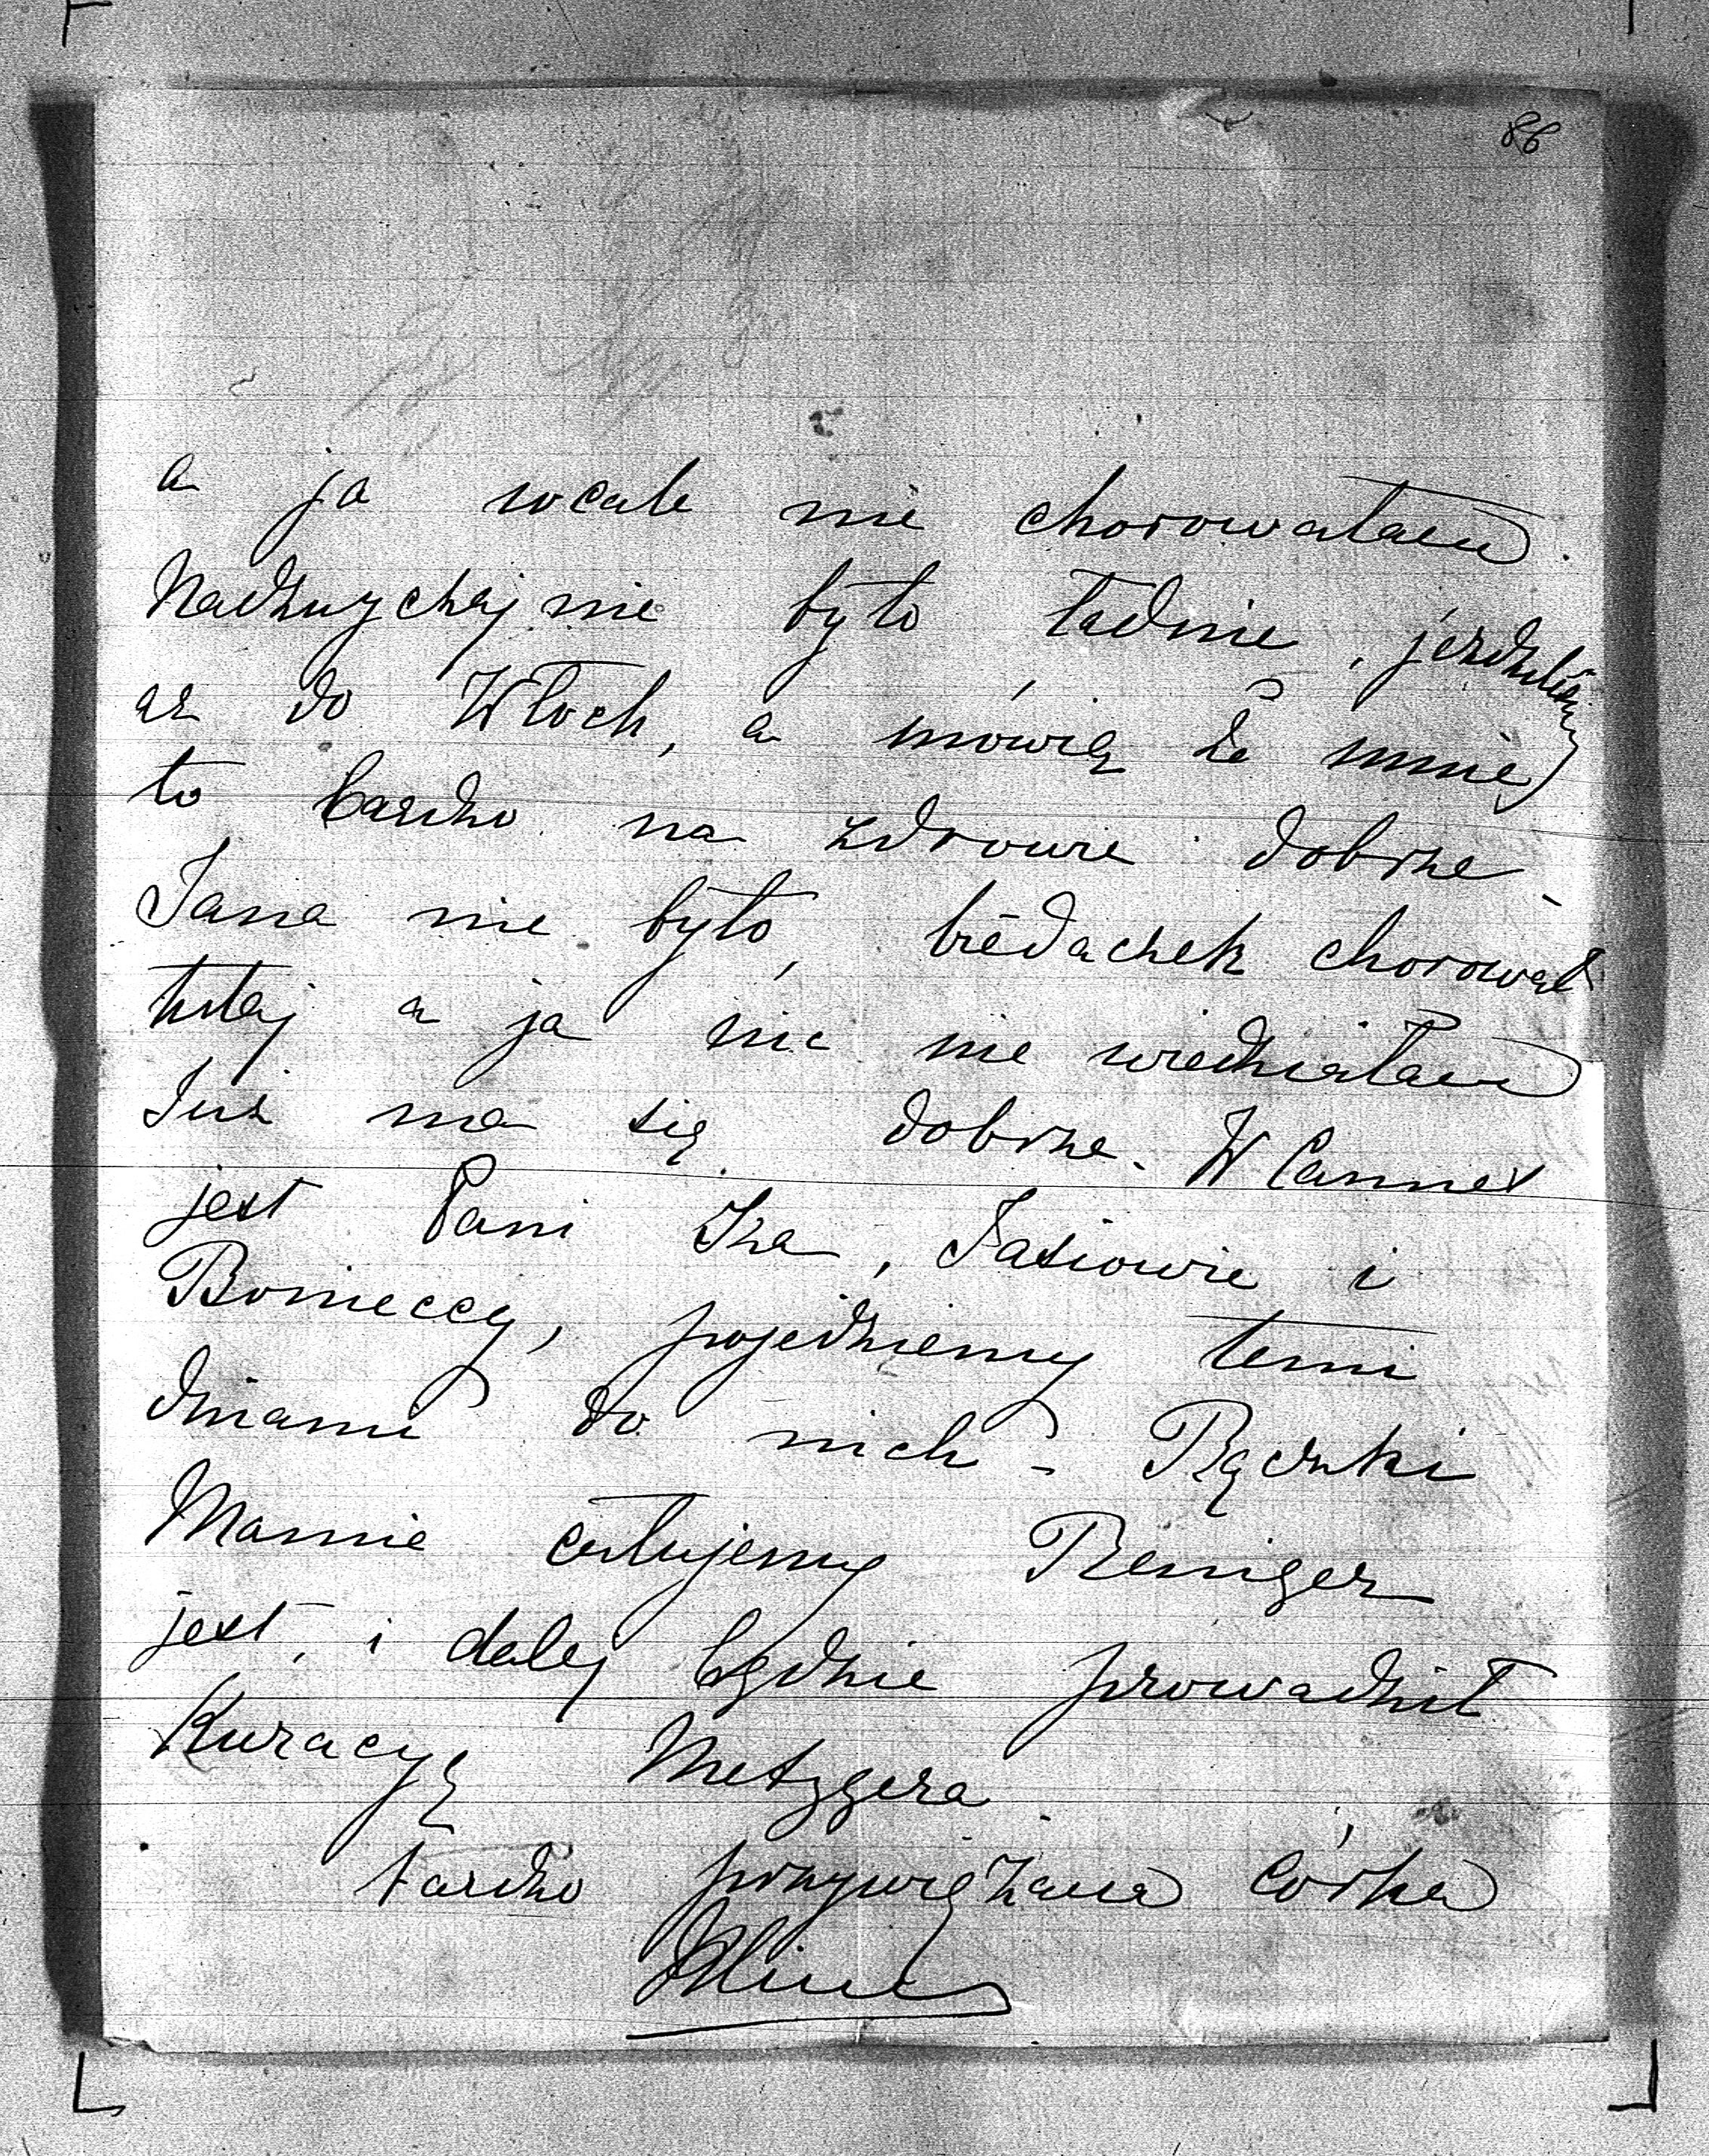 86
a ja wcale nie chorowałam.
Nadzwyczajnie było ładnie, jezdziliśmy
az do Włoch, a mówią że mnie
to bardzo na zdrowie dobrze.
Jana nie było, biédaczek chorował
tutaj a ja nic nie wiedziałam
Juz ma się dobrze. W Cannes
jest Pani Iza, Jasiowie i
Bonieccy, pojedziemy temi
dniami do nich – Rączki
Mamie całujemy Reniger
jest, i dalej będzie prowadził
Kuracyę Metzgera.
bardzo przywiązana córka